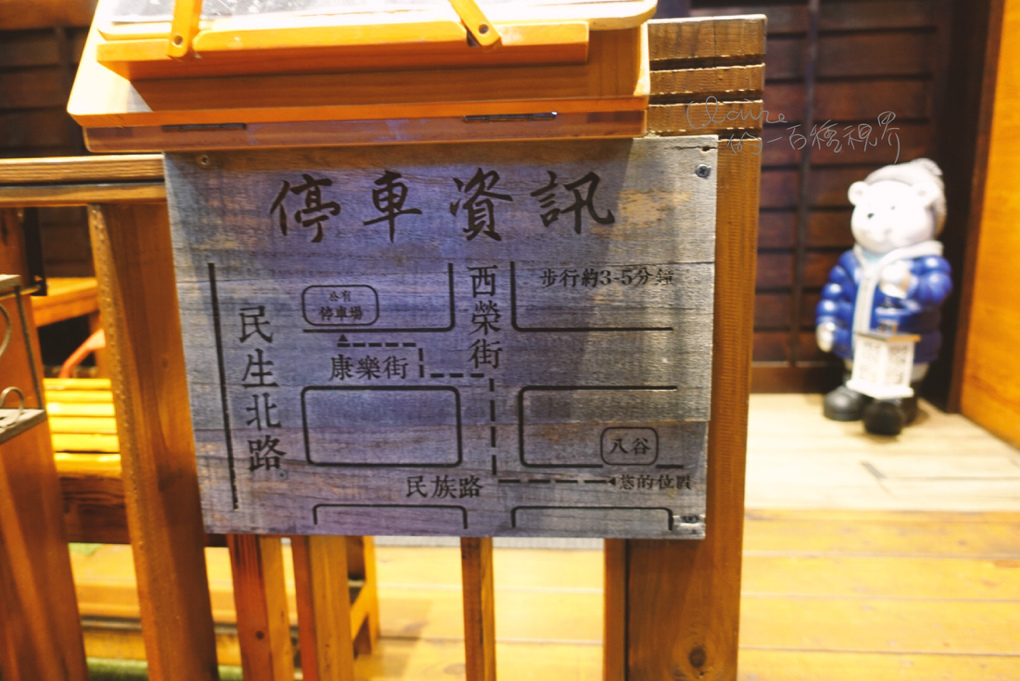 Claire
的一百種視界
停車資訊
步行約3-5分鐘
公有
停車場
西榮街
民生北路
康樂街
八谷
民族路
您的位置